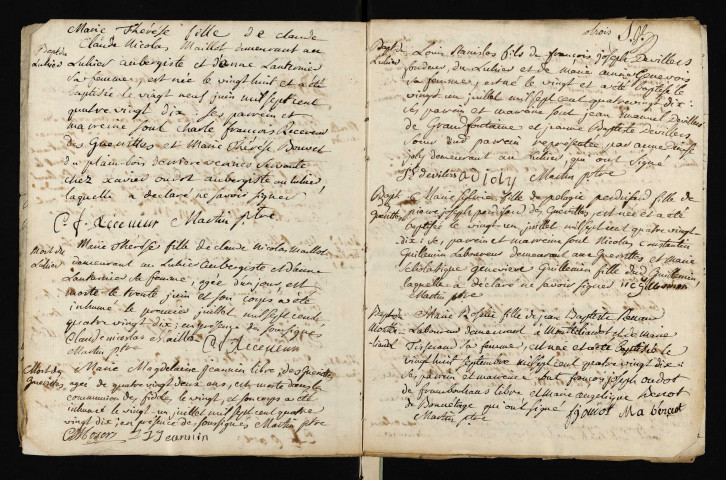 Marie Thérèse fille de claude
Bapt du Luhier
Claude Nicolas Maillot demeurant au
Luhier aubergiste et d'anne Lanternier
sa femme, est née le vingt huit et a été
baptisée le vingt neuf juin mil sept cent
quatre vingt dix. Ses parrein et
marreine sont Charle françois Receveur
des Guenilles et Marie Thérèse Bouvet
du plain-bois servante
chez Xavier oudot aubergiste au luhier
laquelle a déclaré ne savoir signer
C. f. Receveur Martin ptre
Mort du Luhier
Marie Thérèse fille de claude Nicolas maillot
demeurant au Luhier aubergiste et d'anne
Lanternier sa femme, agée d'un jour, est
morte le trente juin et son corps a été
inhumé le premier juillet mil sept cent
quatre vingt dix; en présence des soussignés
Claude nicolas maillot
Martin ptre C. f. Receveur
Mort des Guenilles
Marie Magdelaine Jeannin libre, des Guenilles
agée de quatre vingt deux ans, est morte dans la
communion des fidels le vingt, et son corps a été
inhumé le vingt un juillet mil sept cent quatre
vingt dix; en présence des soussignés Martin ptre
Jeannin
trois
Bapt du Luhier
Louis Stanislas fils de françois joseph Devillers
du Luhier et de marie anne Genevois
sa femme, est né le vingt et a été baptisé le
vingt un juillet mil sept cent quatre vingt dix:
ses parrein et marreine sont jean Devillers
de Grandfontaine et jeanne Baptiste Devillers
soeur dud. parrein representée par
joly demeurant au luhier, qui ont signé
Devillers Martin ptre
Bapt
Marie fille de pelagie perdrisard fille de
pierre joseph perdrisard des Guenilles, est née et a été
baptisée le vingt un juillet mil sept cent quatre vingt
dix: ses parrein et marreine sont Nicolas constantin
Guillemin Laboureur demeurant aux Guenilles et Marie
Scholastique genevieve Guillemin fille dud. Guillemin
laquelle a déclaré ne savoir signer
Martin ptre
Bapt de
Marie Rosalie fille de jean Baptiste
Laboureur demeurant à et de marie
sa femme, est née et a été baptisée le
vingt huit septembre mil sept cent quatre vingt dix:
ses parrein et marreine françois joseph oudot
de libre et marie angelique
de Bonnétage qui ont signé
Martin ptre